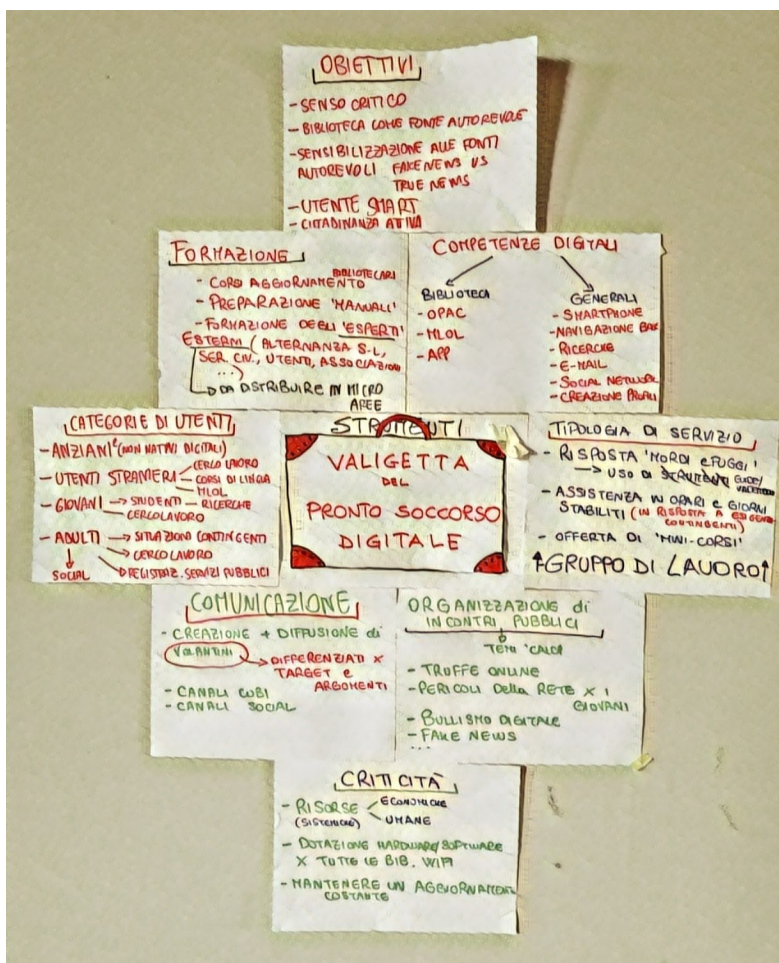 OBIETTIVI
- SENSO CRITICO
- BIBLIOTECA COME FONTE AUTOREVOLE
- SENSIBILIZZAZIONE ALLE FONTI
AUTOREVOLI FAKE NEWS VS
TRUE NEWS
- UTENTE SMART
- CITTADINANZA ATTIVA
FORMAZIONE
BIBLIOTECARI
- CORSI AGGIORNAMENTO
- PREPARAZIONE 'MANUALI'
- FORMAZIONE DEGLI 'ESPERTI'
ESTERNI (ALTERNANZA S-L,
SER. CIV., UTENTI, ASSOCIAZIONI
...)
DA DISTRIBUIRE IN MICRO
AREE
COMPETENZE DIGITALI
BIBLIOTECA
- OPAC
- MLOL
- APP
GENERALI
- SMARTPHONE
- NAVIGAZIONE
- RICERCHE
- E-MAIL
- SOCIAL NETWORK
- CREAZIONE PROFILI
CATEGORIE DI UTENTI
- ANZIANI (NON NATIVI DIGITALI)
- UTENTI STRANIERI CERCO LAVORO
CORSI DI LINGUA
MLOL
- GIOVANI → STUDENTI - RICERCHE
CERCO LAVORO
- ADULTI → SITUAZIONI CONTINGENTI
→ CERCO LAVORO
SOCIAL → REGISTRAZ. SERVIZI PUBBLICI
STRUMENTI
VALIGETTA
DEL
PRONTO SOCCORSO
DIGITALE
TIPOLOGIA DI SERVIZIO
- RISPOSTA 'MORDI e FUGGI'
→ USO DI STRUMENTI
- ASSISTENZA IN ORARI e GIORNI
STABILITI (IN RISPOSTA A ESIGENZE
CONTINGENTI)
- OFFERTA DI 'MINI-CORSI'
↑GRUPPO DI LAVORO↑
COMUNICAZIONE
- CREAZIONE + DIFFUSIONE di
VOLANTINI
→ DIFFERENZIATI X
TARGET e
ARGOMENTI
- CANALI CUBI
- CANALI SOCIAL
ORGANIZZAZIONE di
INCONTRI PUBBLICI
TEMI 'CALDI'
- TRUFFE ONLINE
- PERICOLI della RETE X I
GIOVANI
- BULLISMO DIGITALE
- FAKE NEWS
...
CRITICITÀ
- RISORSE ECONOMICHE
(SISTEMICHE) UMANE
- DOTAZIONE HARDWARE/SOFTWARE
X TUTTE LE BIB. WIFI
- MANTENERE UN AGGIORNAMENTO
COSTANTE